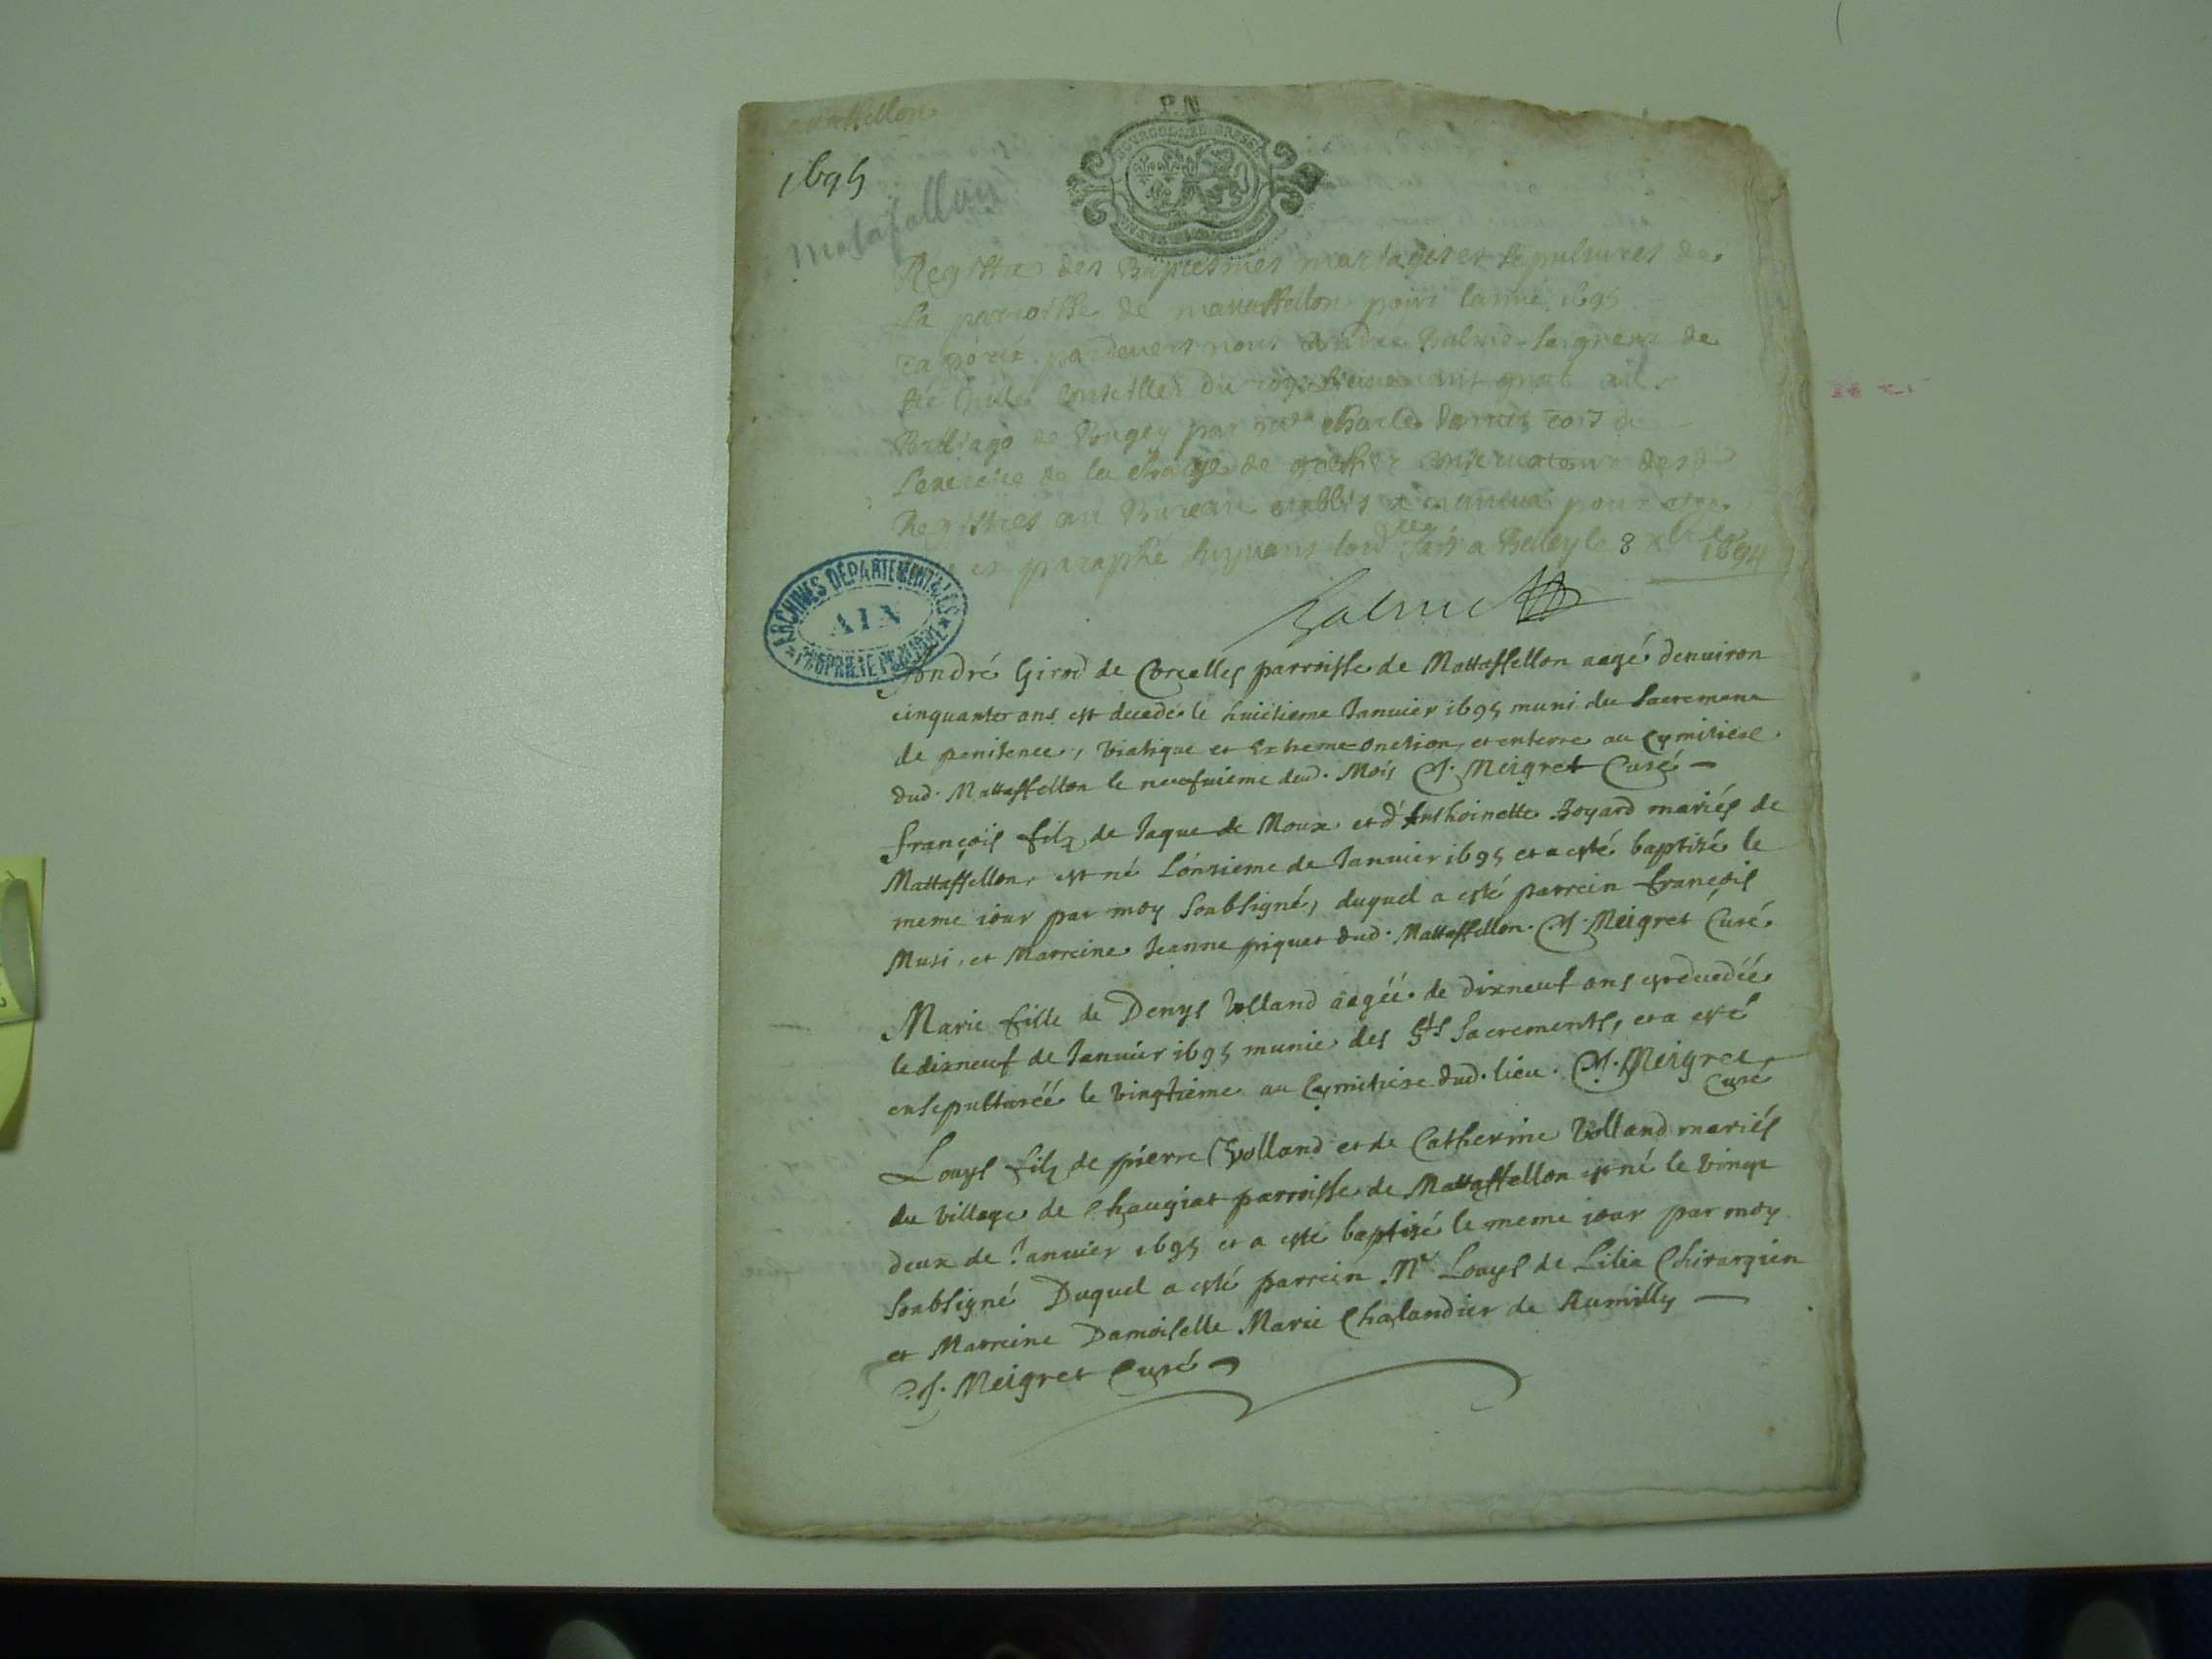 P.N
1695
Matafallon
Registre des Baptesmes mariages et sepultures de
La parroisse de mattaffellon pour lanne 1695
pardevers nous Andre Balme seigneur de
Conseiller du roy Lieutenant gnal au
Bailiage de Bugey par Charles
Lexercice de la charge de greffier conservateur des
Registres au Bureau estably pour estre
et paraphé suyvant lord ce fait a Belley le 8 xbre 1694
Balme
ARCHIVES DÉPARTEMENTALES
AIN
PROPRIÉTÉ PUBLIQUE
André Girod de Corcelles parroisse de Mattaffellon aagé denuiron
cinquante ans est decedé le huictieme Januier 1695 muni du Sacrement
de penitence, Viatique et Extreme onction, et enterré au Cymitiere
dud. Mattaffellon le neufuieme dud. Mois Meigret Curé
françois filz de Jaque de Moux et d'Anthoinette Boyard mariés de
Mattaffellon, est né L'onzieme de Januier 1695 et a esté baptisé le
meme iour par moy Soubsigné, duquel a esté parrein françois
Musi, et Marreine Jeanne piquet dud. Mattaffellon. Meigret Curé
Marie fille de Denys Volland aagéé de dixneuf ans est decedéé
le dixneuf de Januier 1695 munie des Sts Sacrements, et a esté
ensepulturéé le Vingtieme au Cymitiere dud. lieu. Meigret
Curé
Louys filz de pierre Volland et de Catherine Volland mariés
du Village de Chaugiat parroisse de Mattaffellon est né le Vingt
deux de Januier 1695 et a esté baptisé le meme iour par moy
Soubsigné Duquel a esté parrein Mr Louys de Lilia Chirurgien
et Marreine Damoiselle Marie Chalandier de Rumilly
Meigret Curé